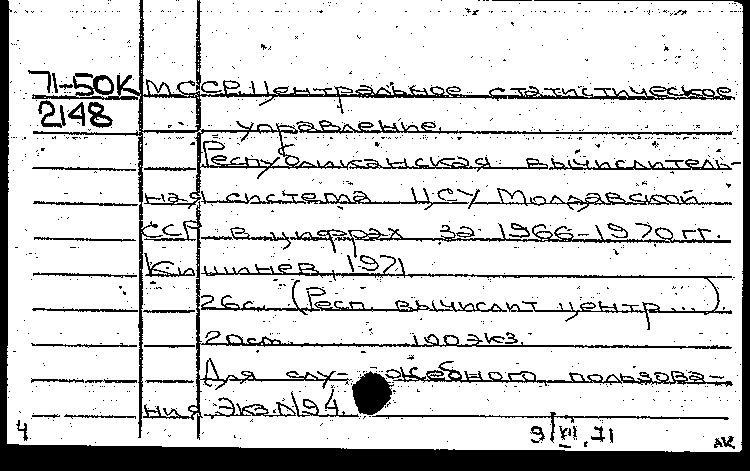 71-50К МССР. Центральное статистическое
2148 управление.
Республиканская вычислитель-
ная система ЦСУ Молдавской
ССР в цифрах за 1966-1970 гг.
Кишинев, 1971.
26с. (Респ. вычислит центр...).
20см. 100 экз.
Для слу- жебного пользова-
ния. Экз. N94.
4 9/VII.71 АК